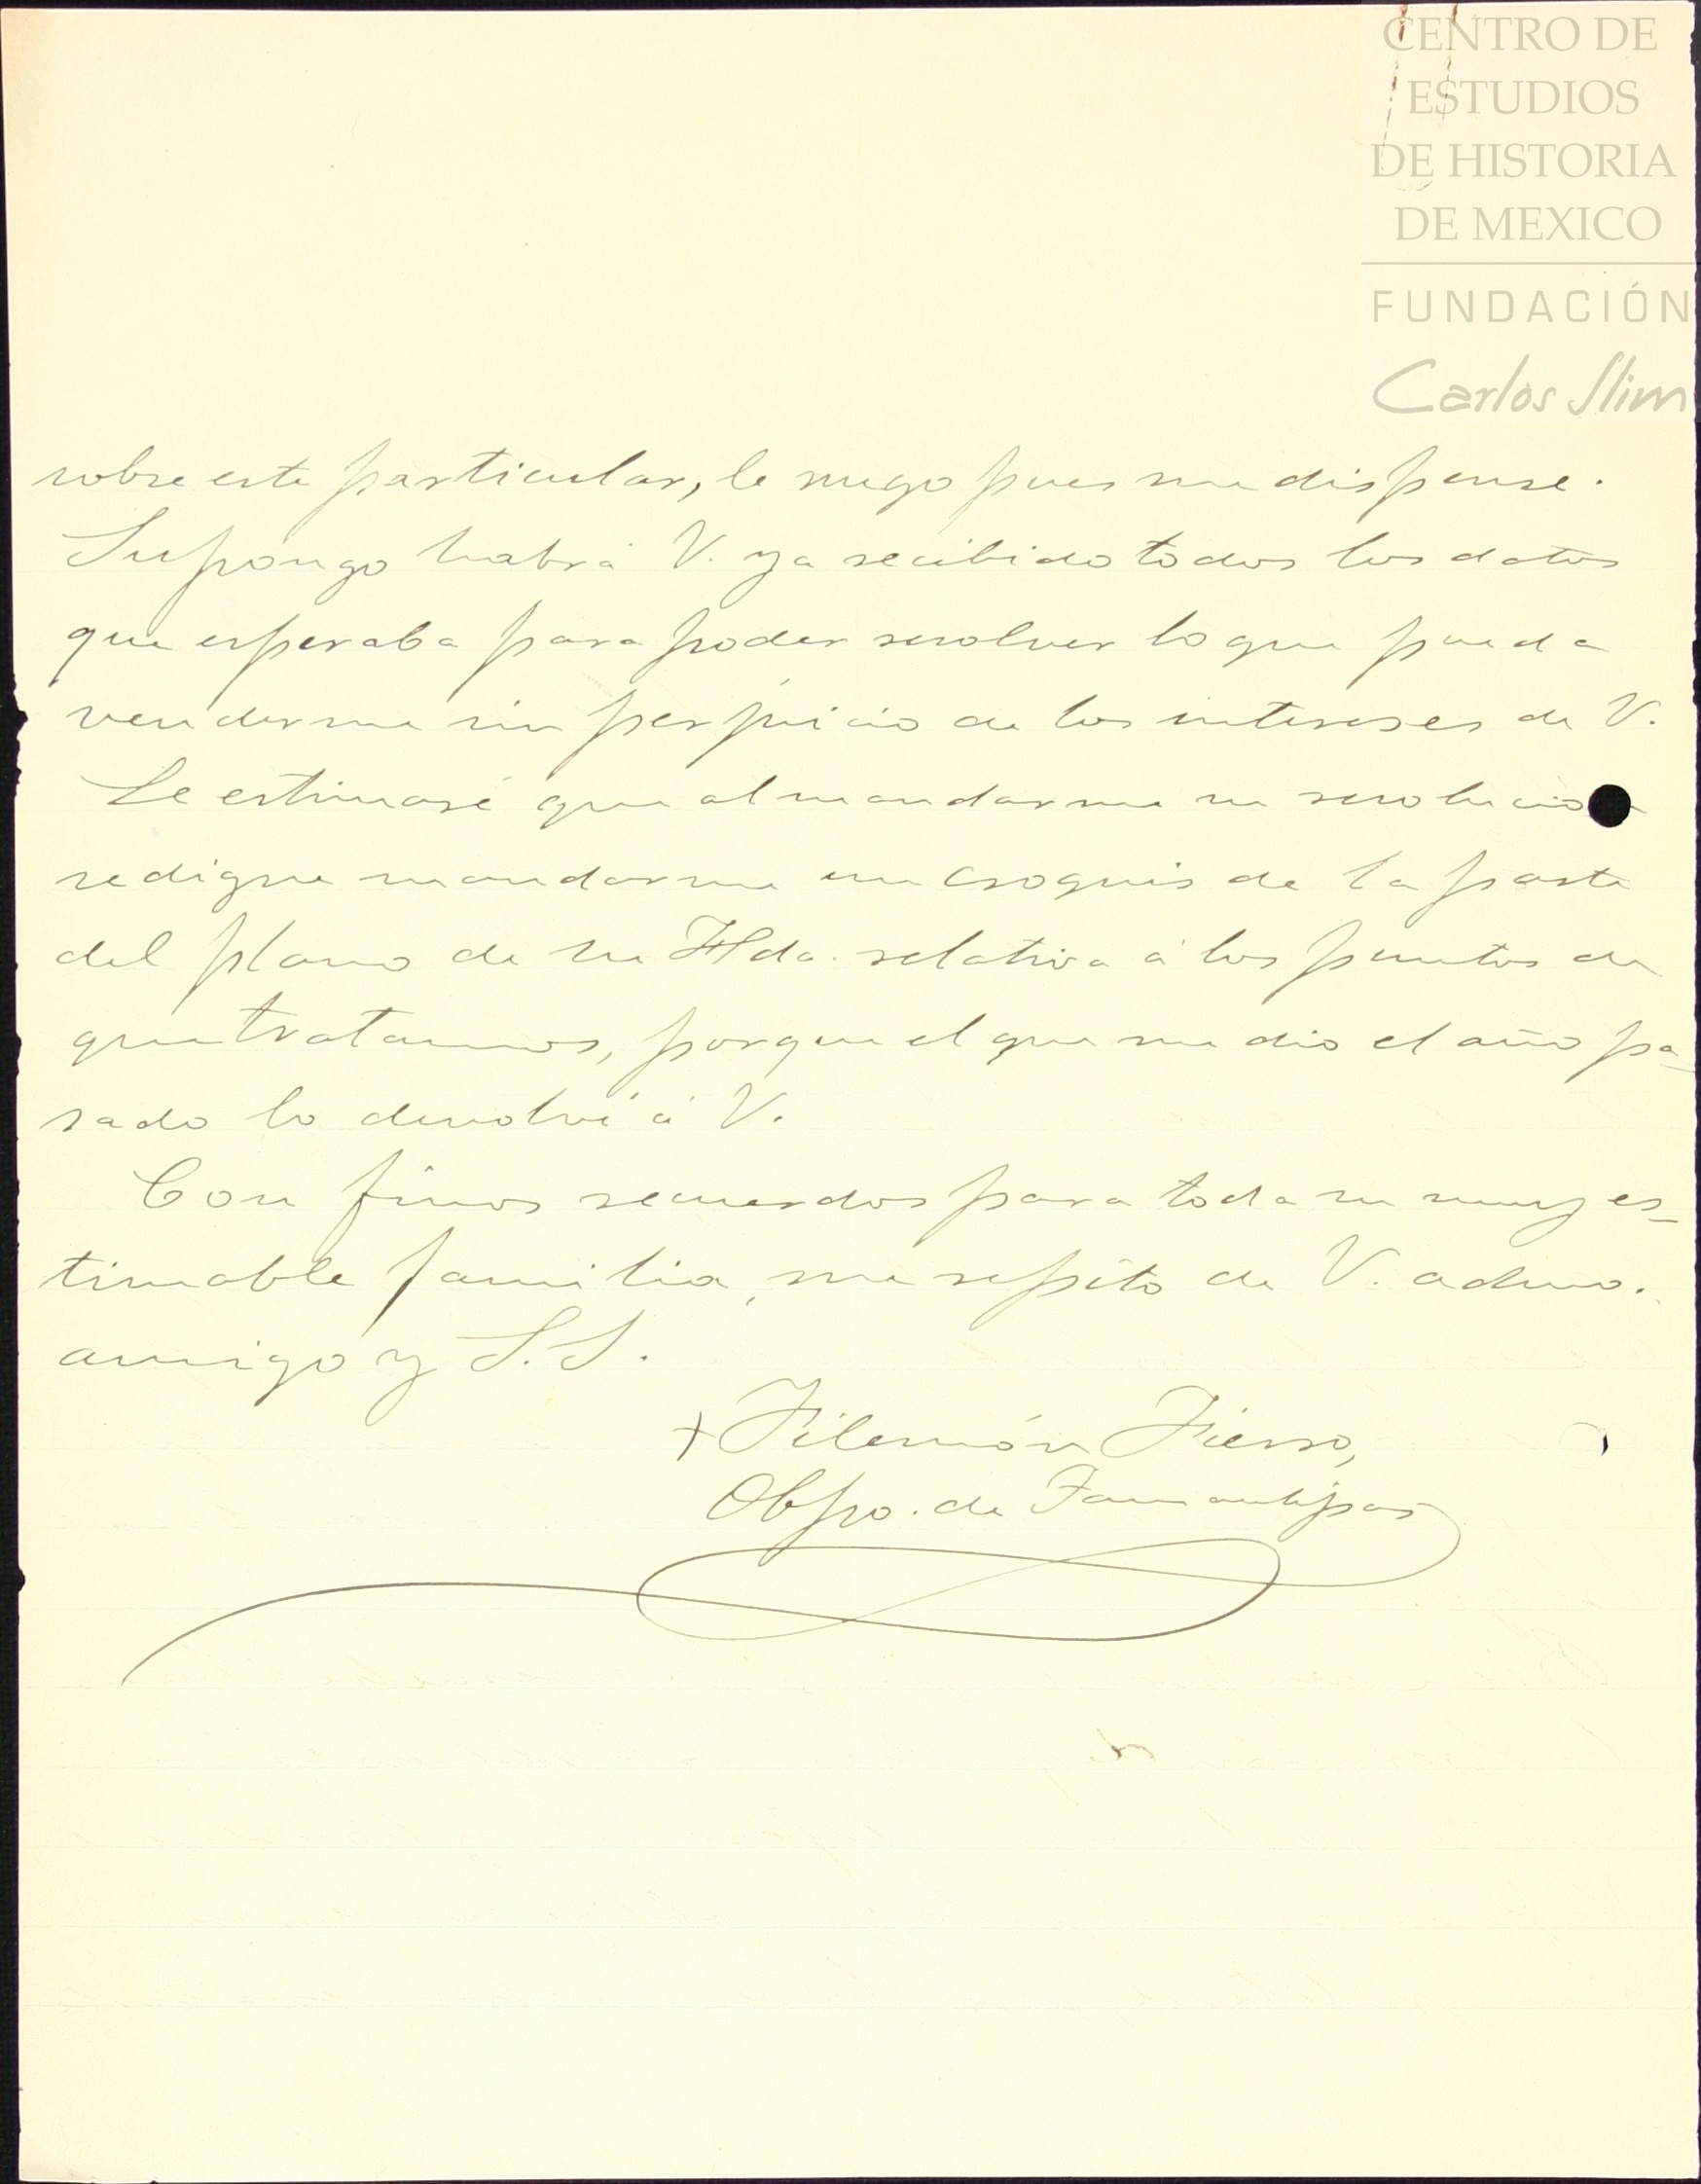 CENTRO DE
ESTUDIOS
DE HISTORIA
DE MEXICO
FUNDACIÓN
Carlos Slim
sobre este particular, le ruego pues me dispense.
Supongo habrá V. ya recibido todos los datos
que esperaba para poder resolver lo que pueda
venderme sin perjuicio de los intereses de V.
Le estimaré que al mandarme su resolución
se digne mandarme un croquis de la parte
del plano de su Hda. relativa á los puntos de
que tratamos, porque el que me dio el año pa-
sado lo devolví á V.
Con finos recuerdos para toda su muy es-
timable familia, me repito de V. admo.
amigo y S.S.
+ Filemón Fierro,
Obpo. de Tamaulipas